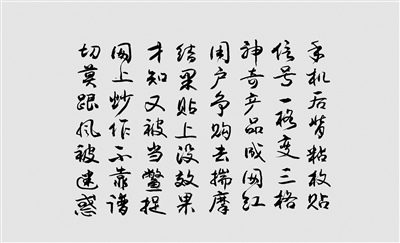 手机后背粘枚贴
信号一格变三格
神奇产品成网红
用户争购去揣摩
结果贴上没效果
才知又被当鳖捉
网上炒作不靠谱
切莫跟风被迷惑